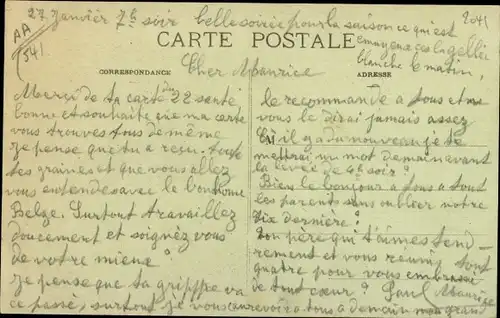 27 Janvier 7h soir belle soirée pour la saison ce qui est
2041
AA
541
ennuyeux ces la gellée
blanche le matin,
CARTE POSTALE
CORRESPONDANCE
ADRESSE
Cher Maurice
Merci de ta carte du 22 santé
bonne et souhaite que ma carte
vous trouves tous de même
je pense que tu a reçu toute
tes graines et que vous allez
vous entendes avec le bonhome
Belge. Surtout travaillez
doucement et soignez vous
de votre mieux?
je pense que ta grippe va
ce passé, surtout je vous
le recommande a tous et ne
vous le dirai jamais assez
s'il y a du nouveau je te
metterai un mot demain avant
la levée de 4h soir?
Bien le bonjour a tous a tout
les parents sans oublier notre
dernière?
ton père qui t'aimes tend
rement et vous réunis tout
quatre pour vous embrasser
de tout cœur? Paul Maurice
au revoir a tous a demain mon grand